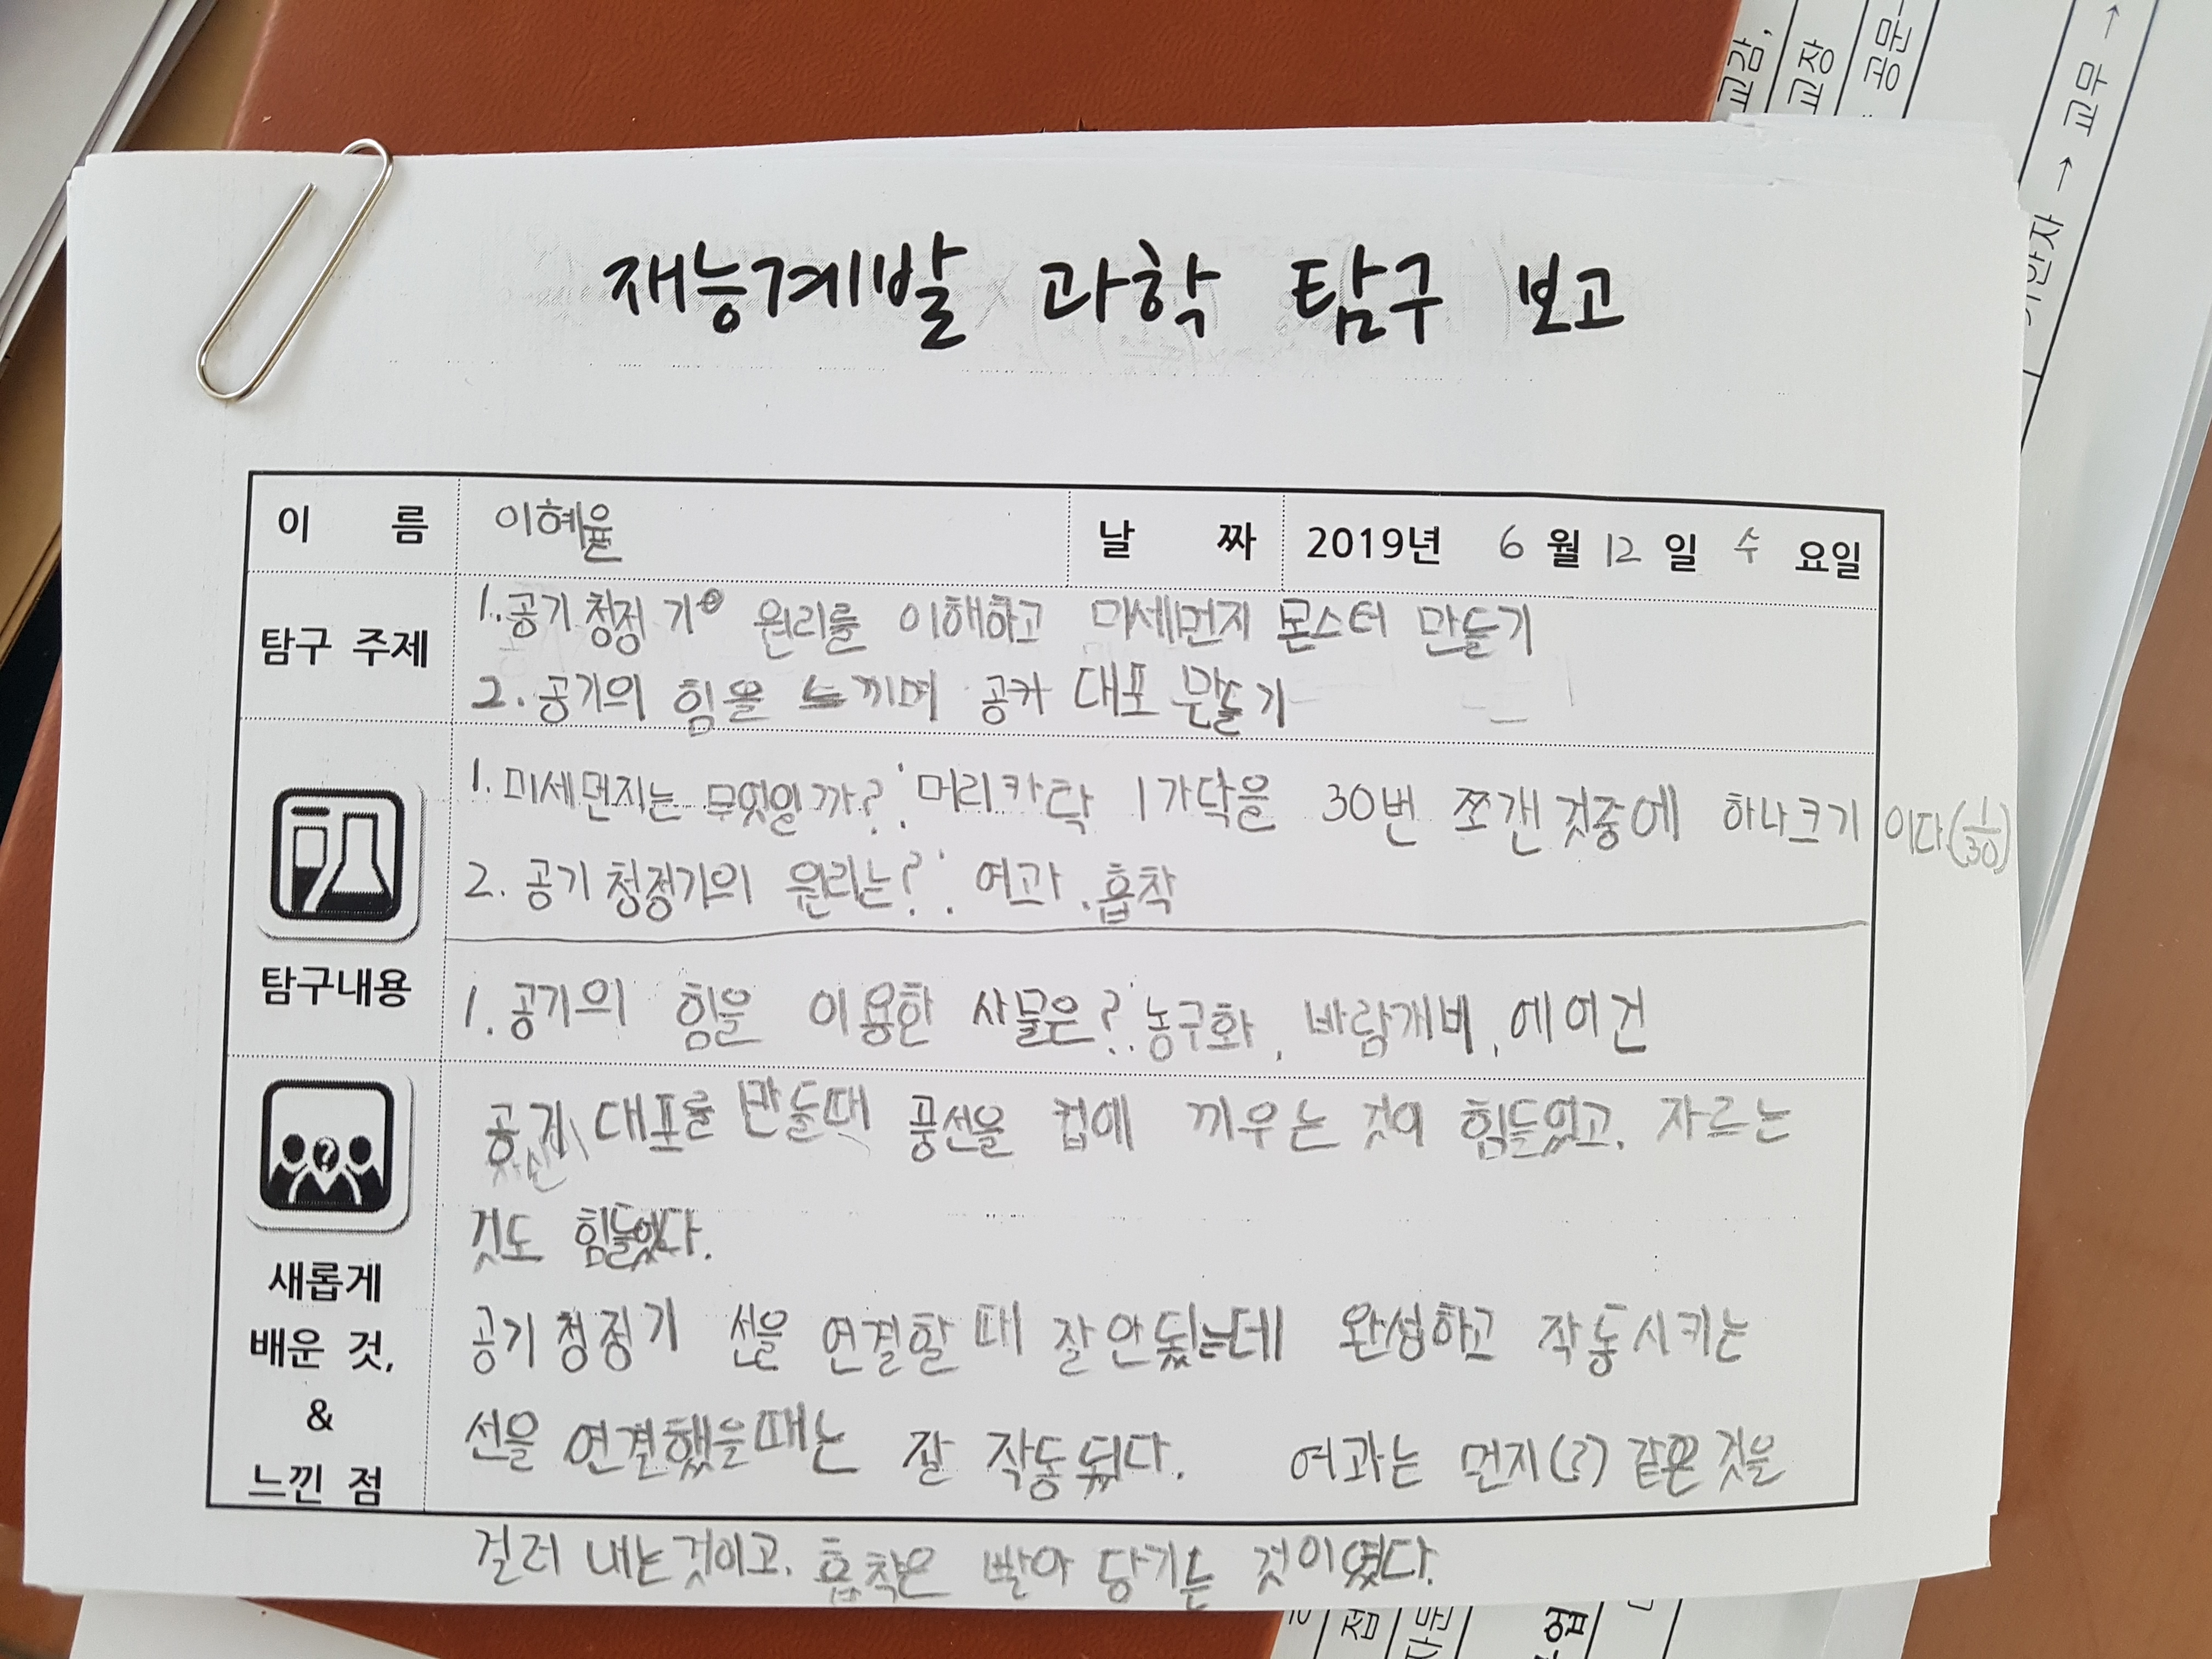 재능계발 과학 탐구 보고
이 름 이혜율 날 짜 2019년 6월 12일 수요일
탐구 주제
1. 공기청정기 원리를 이해하고 미세먼지 몬스터 만들기
2. 공기의 힘을 느끼며 공기 대포 만들기
1. 미세먼지는 무엇일까? : 머리카락 1가닥을 30번 쪼갠것중에 하나크기 이다(1/30)
2. 공기청정기의 원리는? : 여과, 흡착
탐구내용
1. 공기의 힘을 이용한 사물은? : 농구화, 바람개비, 에어건
공기 대포를 만들때 풍선을 컵에 끼우는 것이 힘들었고, 자르는
것도 힘들었다.
새롭게
배운 것,
&
느낀 점
공기청정기 선을 연결할 때 잘안됬는데 완성하고 작동시키는
선을 연결했을때는 잘 작동됬다. 여과는 먼지(?) 같은 것을
걸러 내는것이고, 흡착은 빨아 당기는 것이였다.
교감,
교장
공문
기안자 → 교무 →